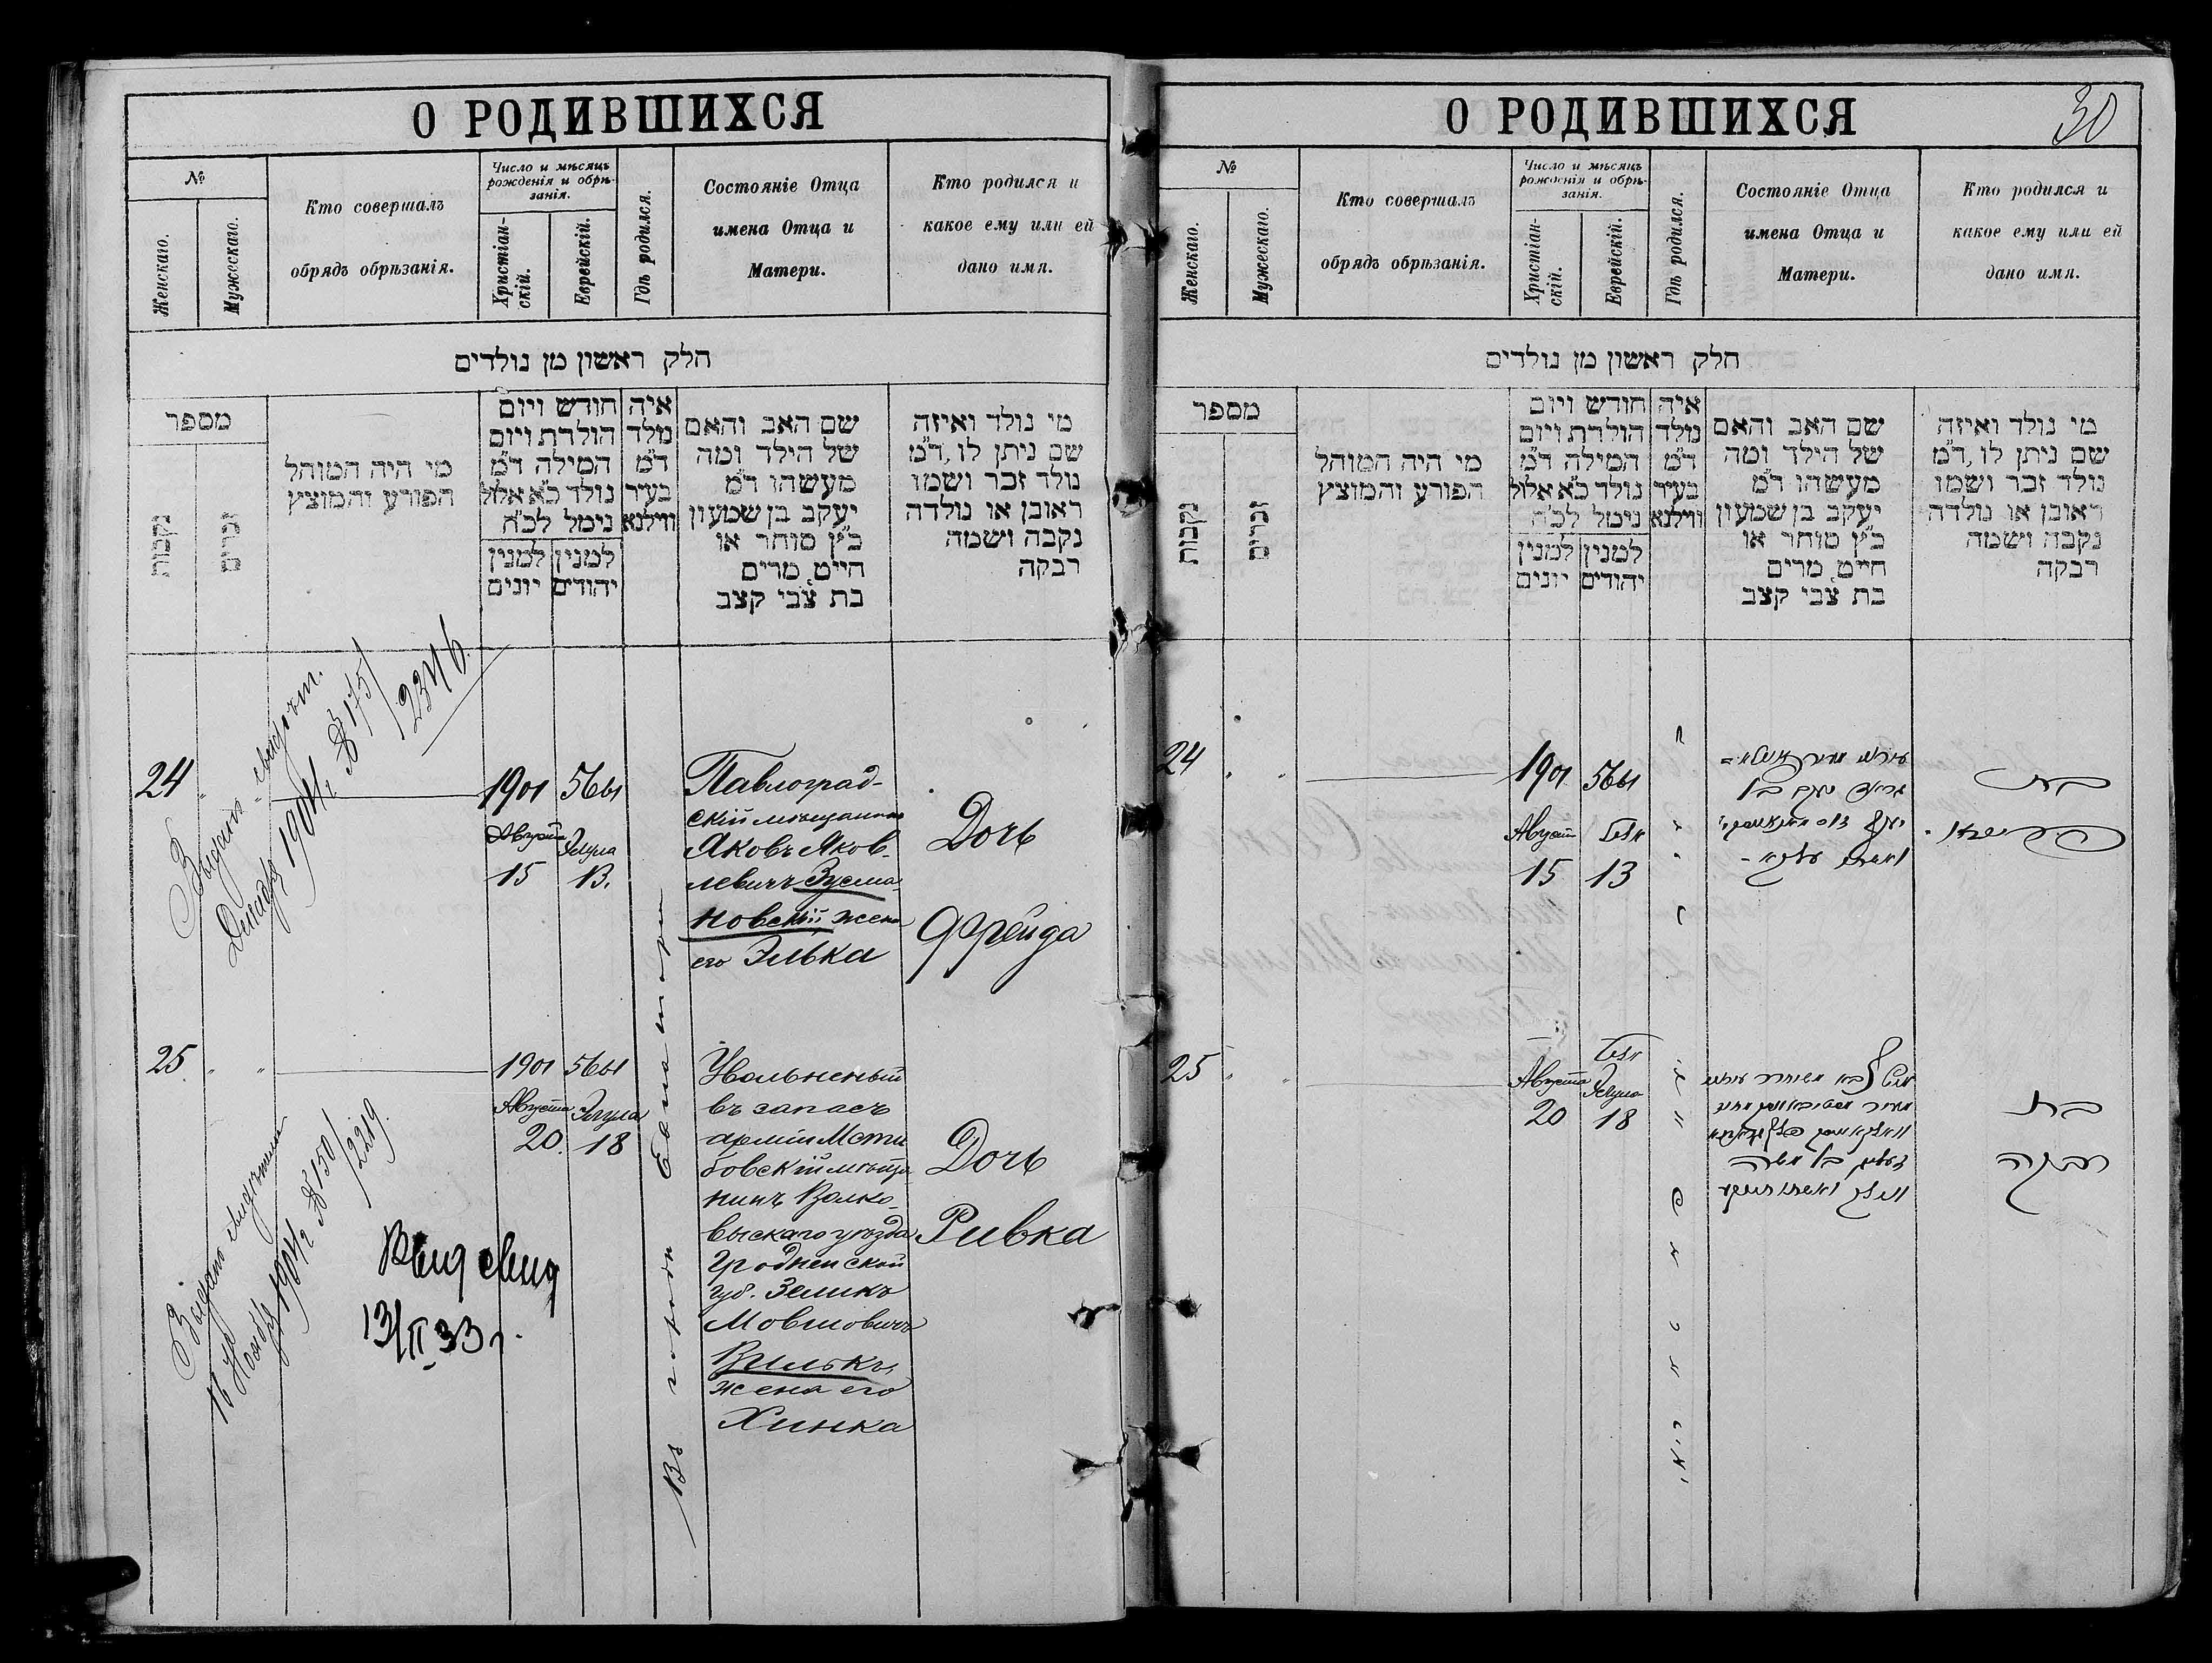 О РОДИВШИХСЯ
№
Женскаго.
Мужескаго.
Кто совершалъ
обрядъ обрѣзанія.
Число и мѣсяцъ
рожденія и обрѣ-
занія.
Христіан-
скій.
Еврейскій.
Гдѣ родился.
Состояніе Отца
имена Отца и
Матери.
Кто родился и
какое ему или ей
дано имя.
חלק ראשון מן נולדים
מספר
נקבות
זכרים
מי היה המוהל
הפורע והמוצץ
חודש ויום
הולדת ויום
המילה ד״מ
נולד כ״א אלול
נימל לכ״ח
למנין
יהודים
למנין
יונים
איה
נולד
ד״מ
בעיר
ווילנא
שם האב והאם
של הילד ומה
מעשהו ד״מ
יעקב בן שמעון
כ״ץ סוחר או
חייט, מרים
בת צבי קצב
מי נולד ואיזה
שם ניתן לו, ד״מ
נולד זכר ושמו
ראובן או נולדה
נקבה ושמה
רבקה
24
Выдано свидѣт.
Декабр 1904 г. № 175/
/2346.
1901 5661
Августа Элула
15 13.
Павлоград-
скій мѣщанинъ
Яковъ Яков-
левичъ Зусма-
новскій, жена
его Элька
Дочь
Фрейда
Въ
Евпатори
25
Выдано свидѣтел
16 Ноябр 1904 г. № 150/
/2219.
Выд свид
13/II 33 г.
1901 5661
Августа Элула
20. 18
Уволненый
въ запасъ
арміи Мсти
бовскій мѣща
нинъ Волко-
выскаго уѣзда
Гродненской
губ. Зеликъ
Мовшовичъ
Вилькъ,
жена его
Хинка
Дочь
Ривка
О РОДИВШИХСЯ
30
№
Женскаго.
Мужескаго.
Кто совершалъ
обрядъ обрѣзанія.
Число и мѣсяцъ
рожденія и обрѣ-
занія.
Христіан-
скій.
Еврейскій.
Гдѣ родился.
Состояніе Отца
имена Отца и
Матери.
Кто родился и
какое ему или ей
дано имя.
חלק ראשון מן נולדים
מספר
נקבות
זכרים
מי היה המוהל
הפורע והמוצץ
חודש ויום
הולדת ויום
המילה ד״מ
נולד כ״א אלול
נימל לכ״ח
למנין
יהודים
למנין
יונים
איה
נולד
ד״מ
בעיר
ווילנא
שם האב והאם
של הילד ומה
מעשהו ד״מ
יעקב בן שמעון
כ״ץ סוחר או
חייט, מרים
בת צבי קצב
מי נולד ואיזה
שם ניתן לו, ד״מ
נולד זכר ושמו
ראובן או נולדה
נקבה ושמה
רבקה
24
1901 5661
Август אלול
15 13
בת
25
אלול
Августа Элула
20 18
בת
רבקה